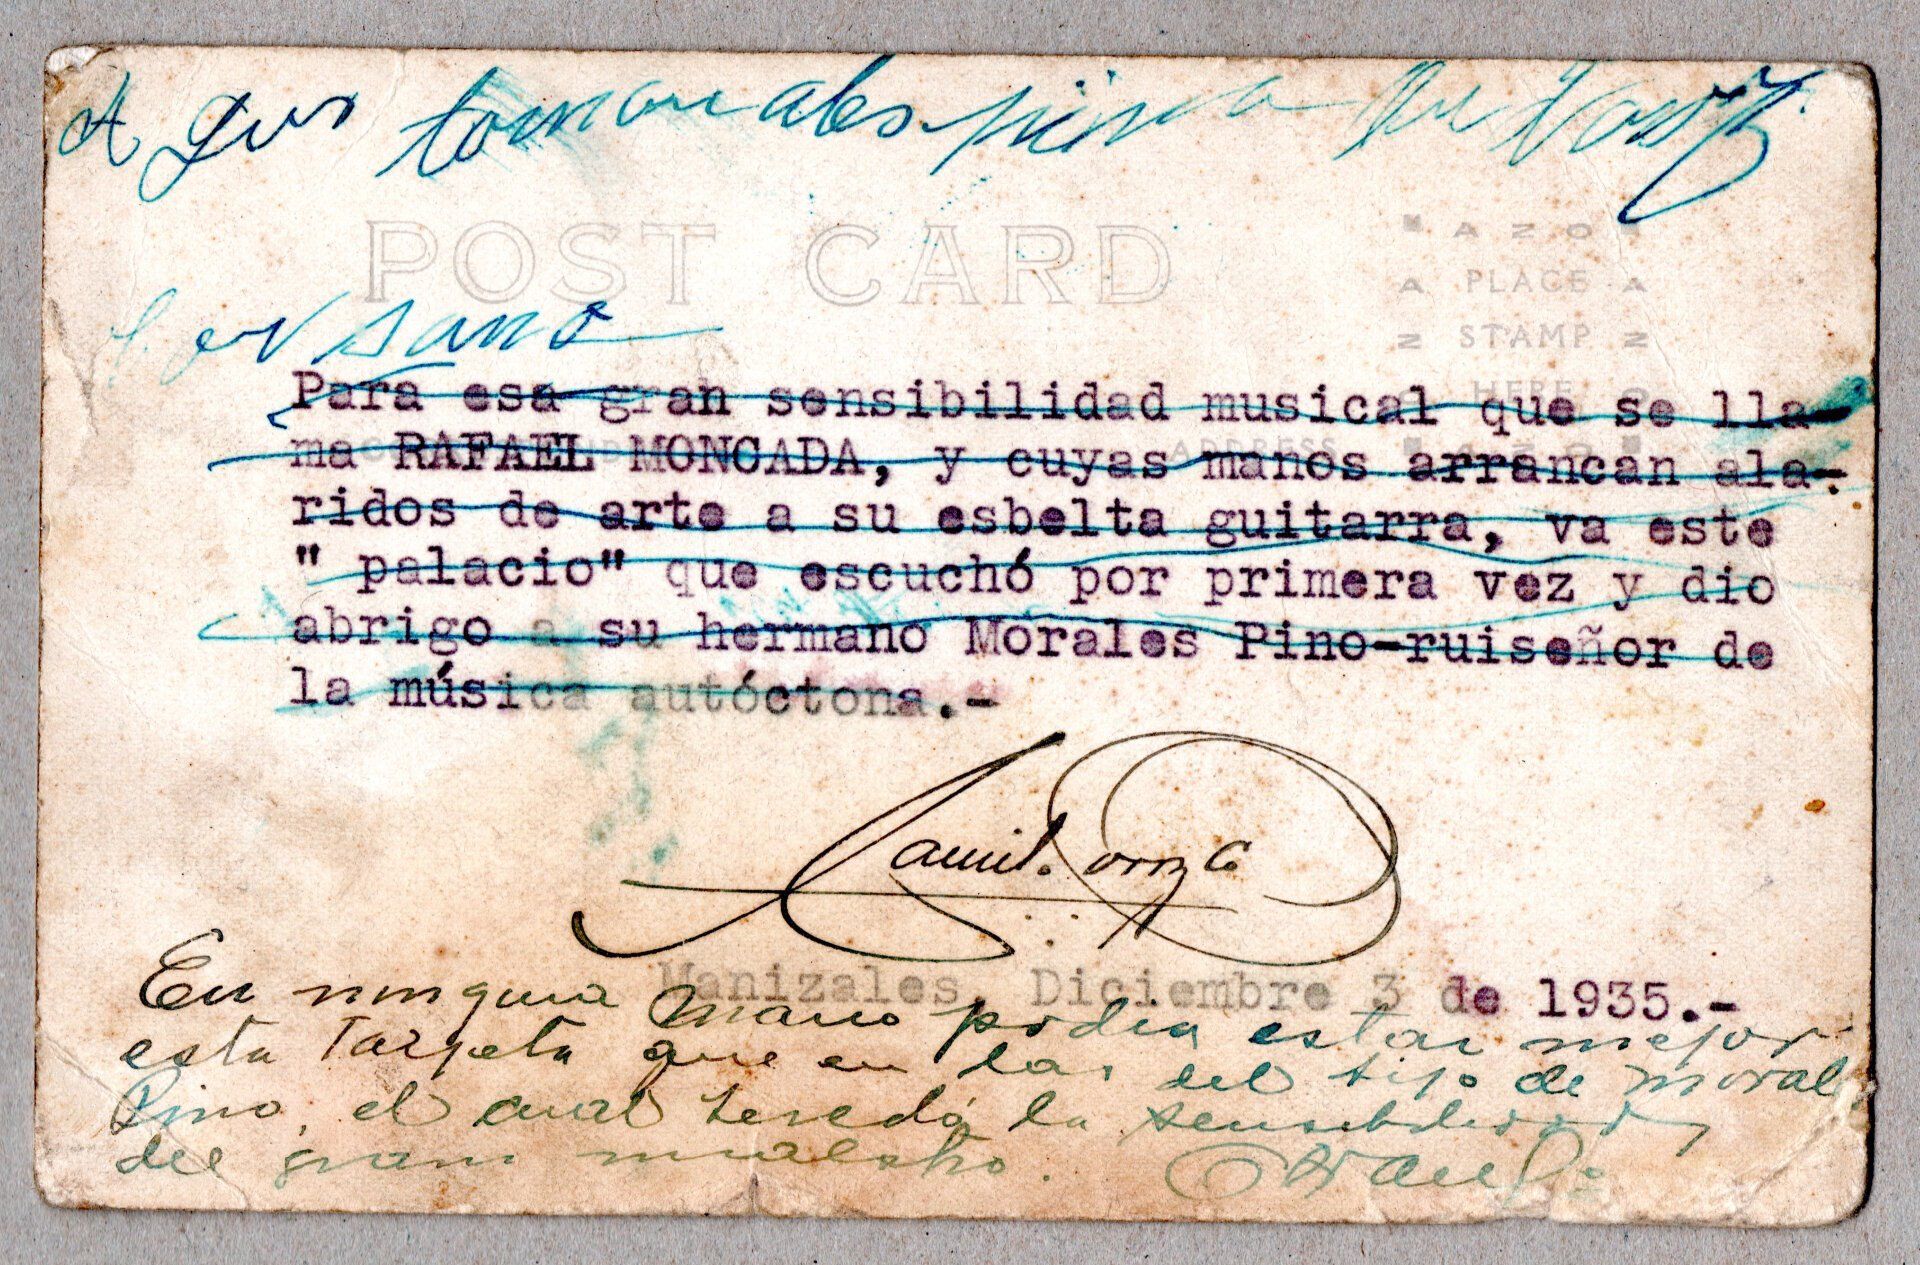 A Luis
POST CARD
AZO
PLACE
STAMP
HERE
ADDRESS
Para esa gran sensibilidad musical que se lla-
ma RAFAEL MONCADA, y cuyas manos arrancan ala-
ridos de arte a su esbelta guitarra, va este
" palacio" que escuchó por primera vez y dio
abrigo a su hermano Morales Pino-ruiseñor de
la música autóctona.-
Manizales, Diciembre 3 de 1935.-
En ninguna mano podia estar mejor
esta Tarjeta que en las del hijo de Morales
Pino, el cual heredó la
del gran maestro.